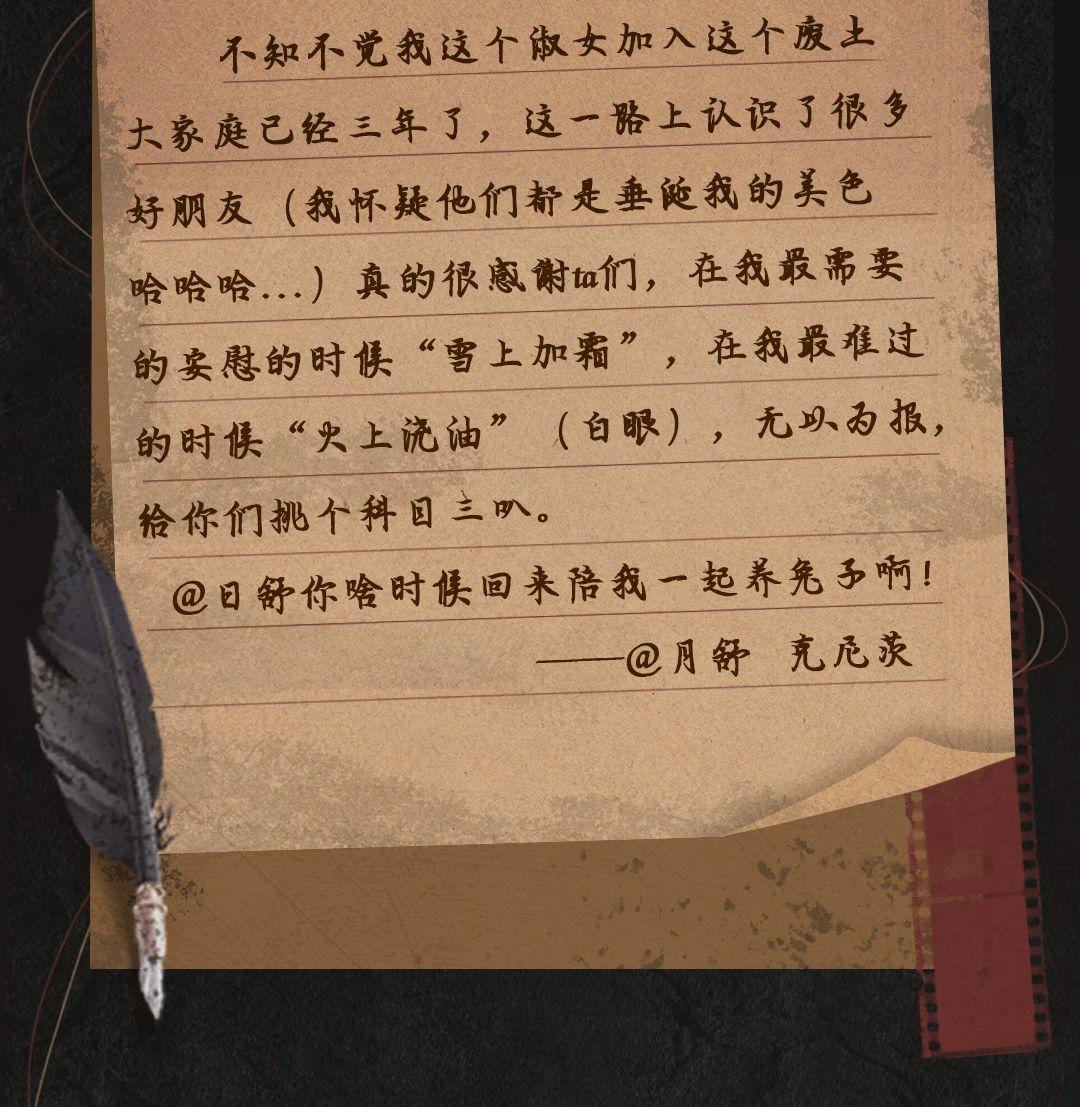 不知不觉我这个淑女加入这个废土
大家庭已经三年了，这一路上认识了很多
好朋友（我怀疑他们都是垂涎我的美色
哈哈哈...）真的很感谢ta们，在我最需要
的安慰的时候“雪上加霜”，在我最难过
的时候“火上浇油”（白眼），无以为报，
给你们挑个科目三叭。
@日舒你啥时候回来陪我一起养兔子啊！
——@月舒 克尼茨